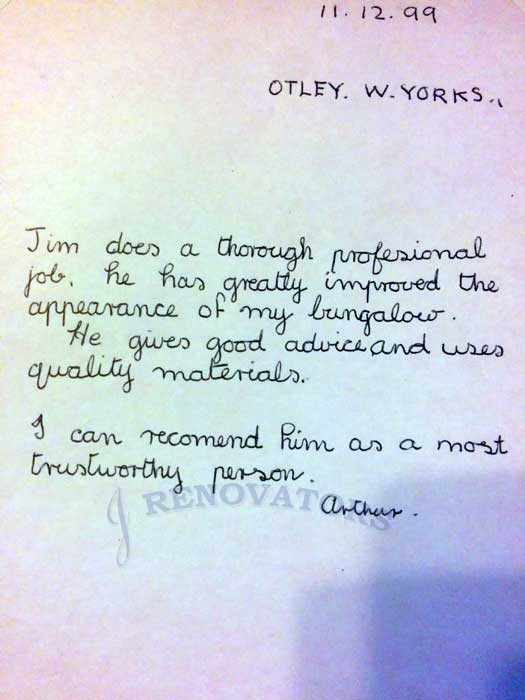 11.12.99
OTLEY. W.YORKS.,
Jim does a thorough profesional
job. he has greatly improved the
appearance of my bungalow.
He gives good advice and uses
quality materials.
I can recomend him as a most
trustworthy person.
J RENOVATORS
Arthur.